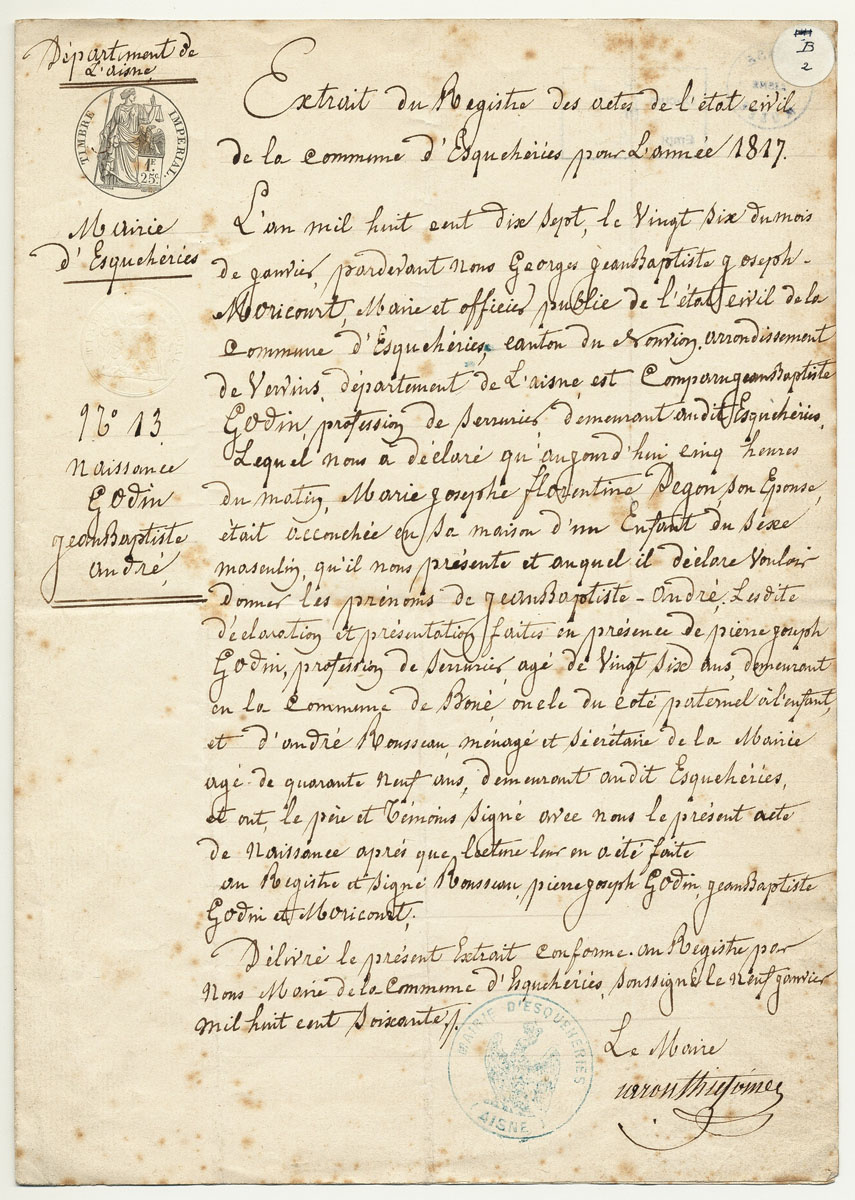 Département de
L'aisne
TIMBRE IMPERIAL.
1F.
25c.
Mairie
d'Esquehéries
N° 13
Naissance
Godin
jean Baptiste
andré
B
2
Extrait du Registre des actes de l'état civil
de la Commune d'Esquehéries pour L'année 1817.
L'an mil huit cent dix sept, le Vingt Six du mois
de janvier, pardevant Nous Georges jean Baptiste joseph
Moricourt, Maire et officier public de l'état civil de la
Commune d'Esquehéries, canton du Nouvion, arrondissement
de Vervins, département de L'aisne, est Comparu jean Baptiste
Godin, profession de Serrurier demeurant audit Esquehéries,
Lequel nous a déclaré qu'aujourd'hui cinq heures
du matin, Marie josephe florentine Degon, son Eponse,
était accouchée en Sa maison d'un Enfant du Séxe
masculin, qu'il nous présente et auquel il déclare Vouloir
donner les prénoms de jean Baptiste - André. Lesdite
déclaration et présentation faites en présence de pierre joseph
Godin, profession de Serrurier, agé de Vingt Six ans, demeurant
en la Commune de Boué, oncle du coté paternel à l'enfant,
et d'andré Rousseau, ménagé et Sécrétaire de la Mairie
agé de quarante Neuf ans, demeurant audit Esquehéries,
et ont, le père et Témoins Signé avec nous le présent acte
de Naissance aprés que lecture leur en a été faite
au Registre et Signé Rousseau, pierre joseph Godin, jean Baptiste
Godin et Moricourt.
Délivré le présent Extrait conforme au Registre par
Nous Maire de la Commune d'Esquehéries, Soussigné le Neuf janvier
mil huit cent Soixante.
Le Maire
MAIRIE D'ESQUEHERIES
AISNE